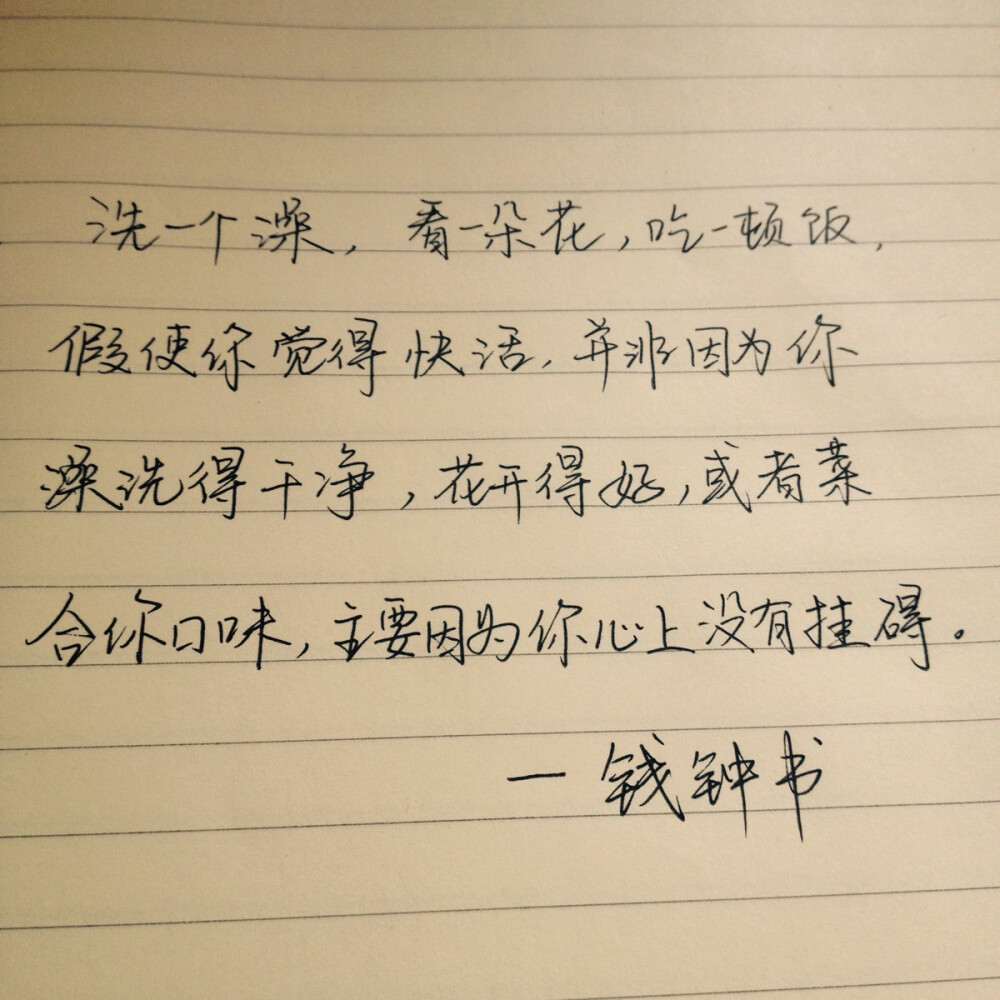 洗一个澡，看一朵花，吃一顿饭，
假使你觉得快活，并非因为你
澡洗得干净，花开得好，或者菜
合你口味，主要因为你心上没有挂碍。
— 钱钟书